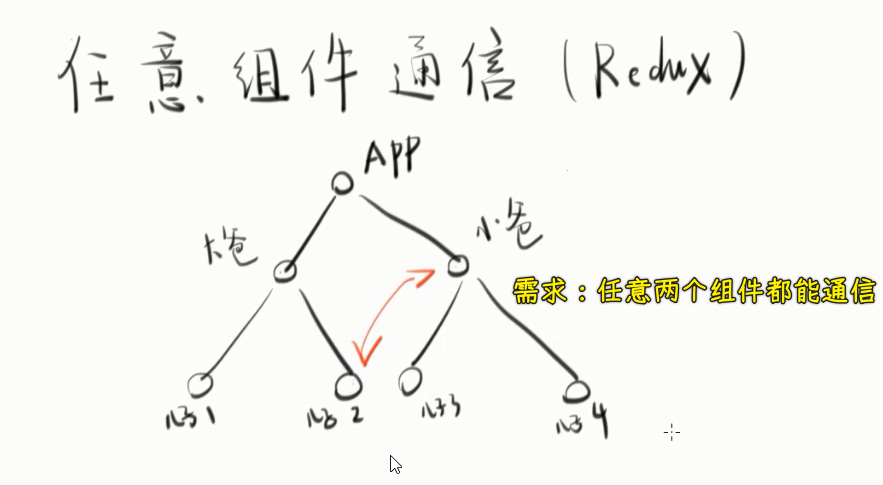 任意组件通信(Redux)
APP
大爸
小爸
需求：任意两个组件都能通信
儿子1
儿子2
儿子3
儿子4